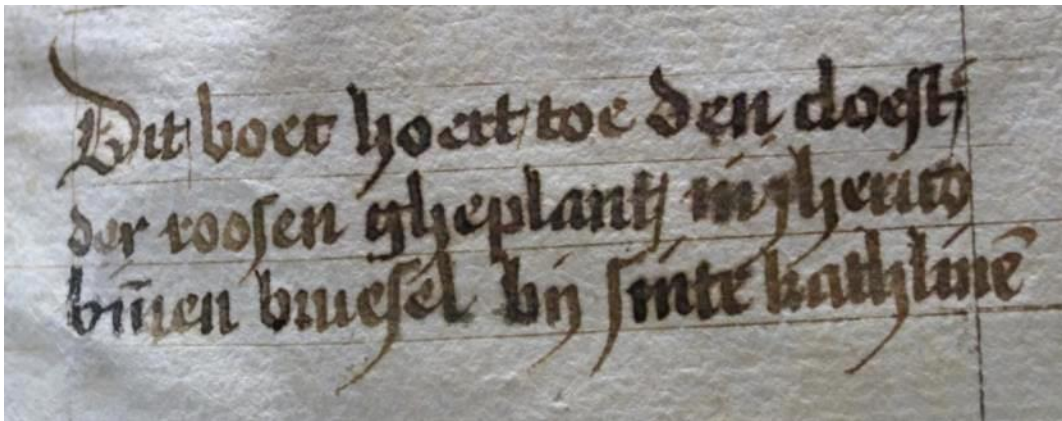 Dit boec hoert toe den cloest᷑
der roosen gheplant in jherico
bīnen bruesel bij sinte kathlinē